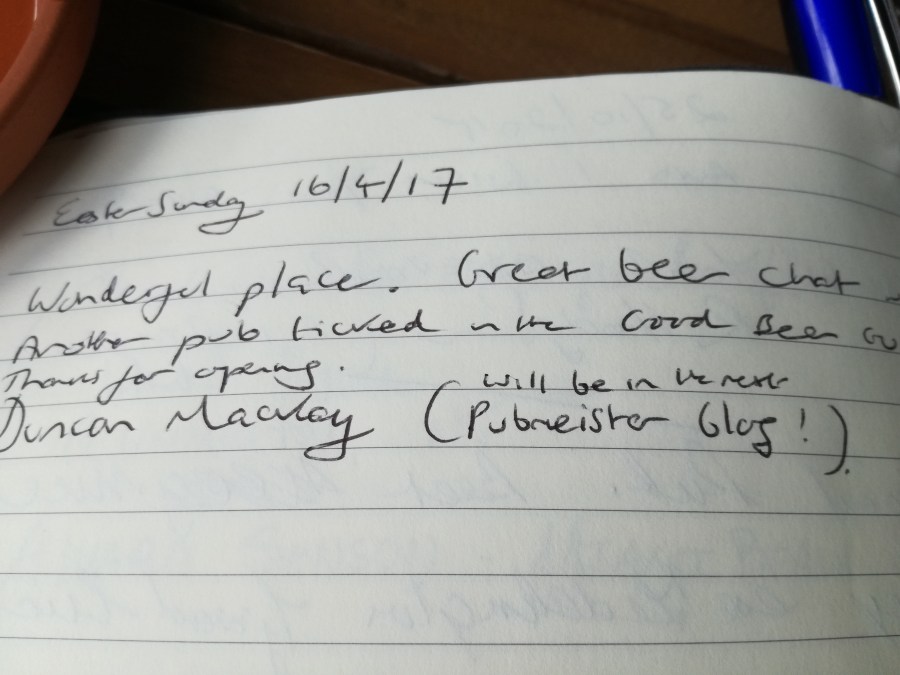 Easter Sunday 16/4/17
Wonderful place. Great beer chat
Another pub ticked in the Good Beer Gu
Thanks for opening.
will be in the next
Duncan Mackay (Pubmeister Blog!).